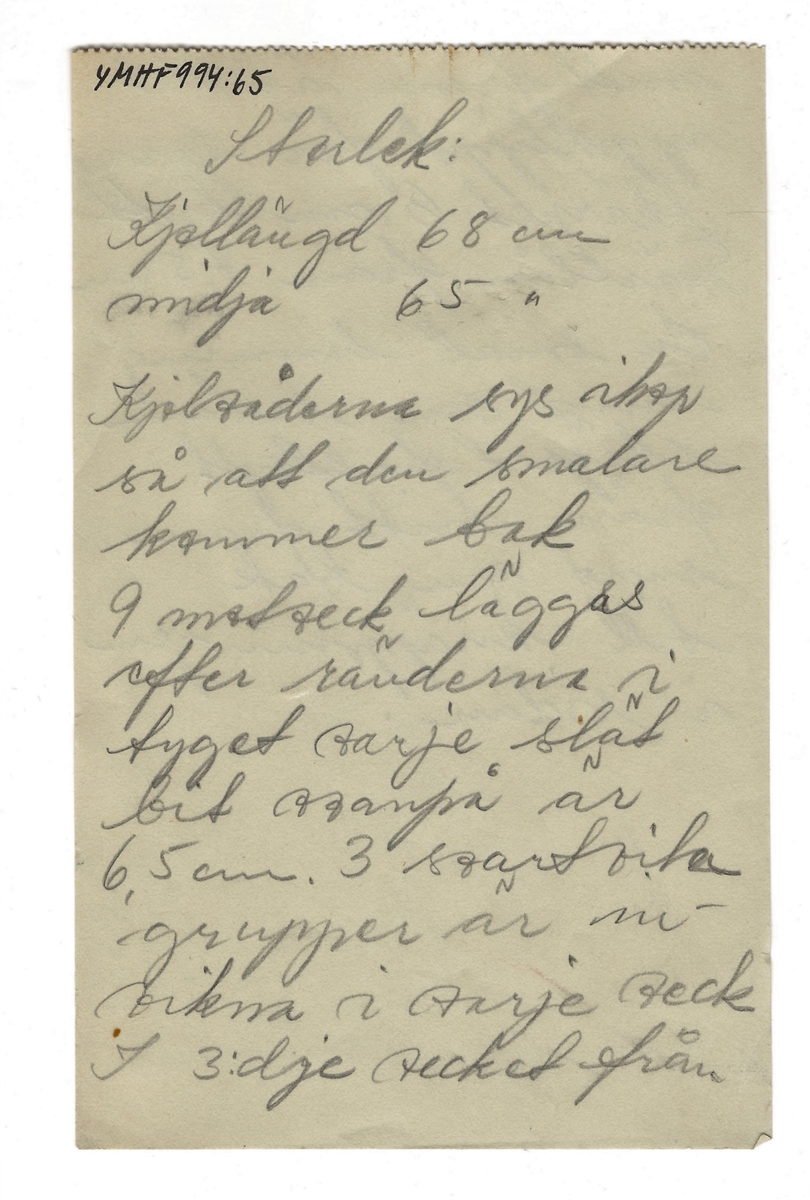 YMHF994:65
Storlek:
Kjollängd 68 cm
midja 65 "
Kjolvåderna sys ihop
så att den smalare
kommer bak
9 motveck läggas
efter ränderna i
tyget varje slät
bit ovanpå är
6,5 cm. 3 svartvita
grupper är in-
vikna i varje veck
I 3:dje vecket från